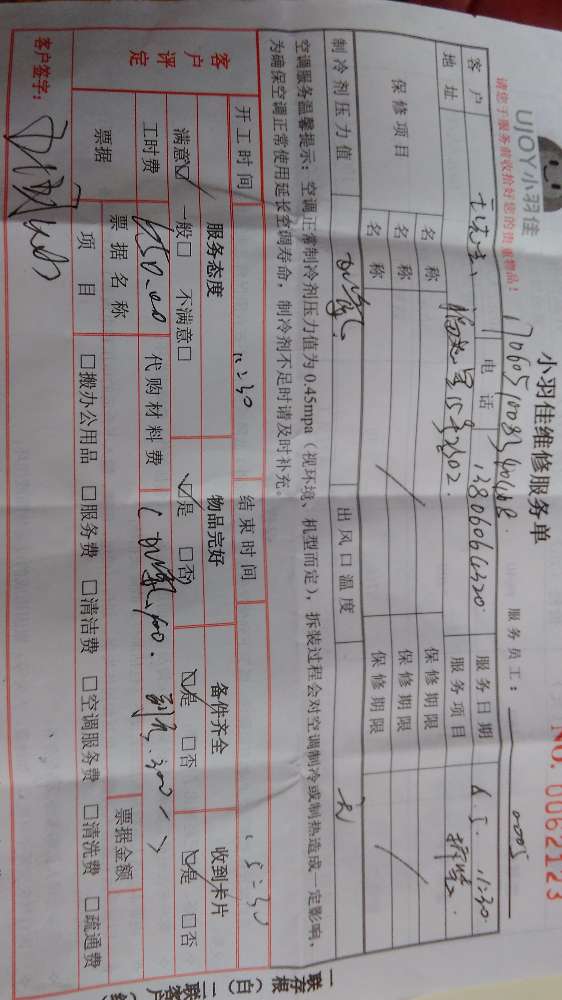 UJOY小羽佳
小羽佳维修服务单
请您于服务前收拾好您的贵重物品！
服务员工：
0005
No. 0062123
客户
电话
13806064320
服务日期
6.5. 11:30
地址
15号2602
服务项目
保修项目
名称
保修期限
名称
保修期限
名称
保修期限
制冷剂压力值
加氟
出风口温度
空调服务温馨提示：空调正常制冷剂压力值为0.45mpa（视环境、机型而定），拆装过程会对空调制冷或制热造成一定影响，
为确保空调正常使用延长空调寿命，制冷剂不足时请及时补充。
客户评定
开工时间
11:30
结束时间
15:30
服务态度
物品完好
备件齐全
收到卡片
满意☑ 一般□ 不满意□
☑是 □否
☑是 □否
☑是 □否
工时费
450.00
代购材料费
票据
票据名称
票据金额
项目
□搬办公用品 □服务费 □清洁费 □空调服务费 □清洗费 □疏通费
客户签字：
一联存根（白）二联客户